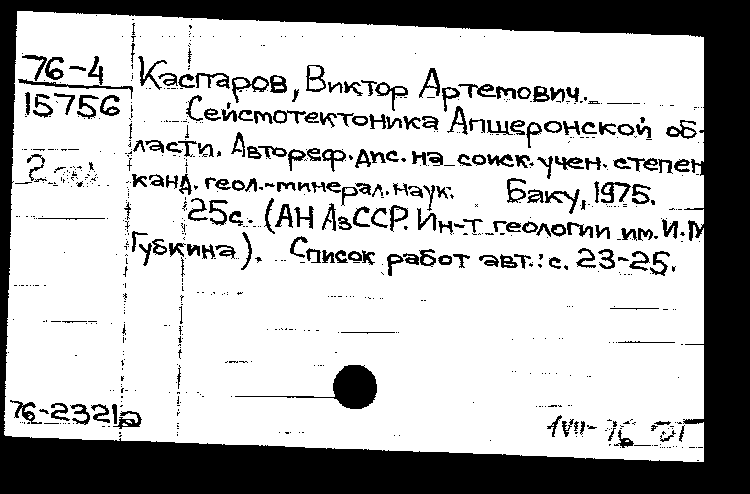 76-4
15756
2 экз
Каспаров, Виктор Артемович.
Сейсмотектоника Апшеронской об-
ласти. Автореф. дис. на соиск. учен. степен
канд. геол.-минерал. наук. Баку, 1975.
25с. (АН АзССР. Ин-т геологии им. И.М
Губкина). Список работ авт.: с. 23-25.
76-2321а
1VII-76